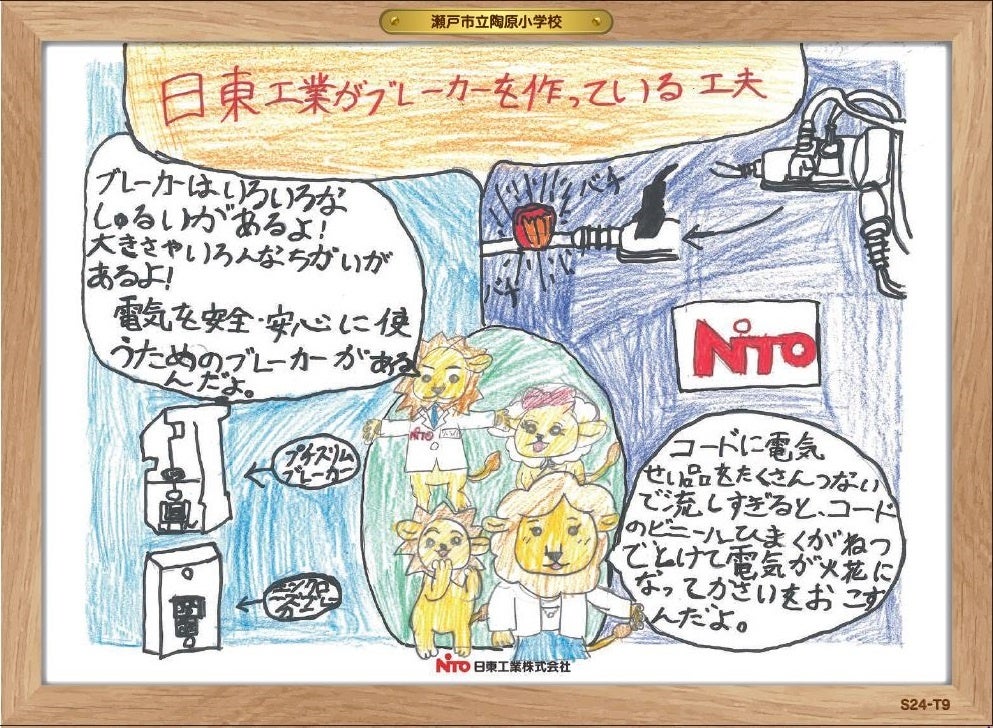 瀬戸市立陶原小学校
日東工業がブレーカーを作っている工夫
ブレーカーはいろいろな
しゅるいがあるよ!
大きさやいろんなちがいが
あるよ!
電気を安全・安心に使
うためのブレーカーがある
んだよ。
バチ
バチ
NiTO
コードに電気
せい品をたくさんつない
で流しすぎると、コード
のビニールひまくがねつ
でとけて電気が火花に
なってかさいをおこす
んだよ。
プチスリム
ブレーカー
NiTO
NiTO 日東工業株式会社
S24-T9